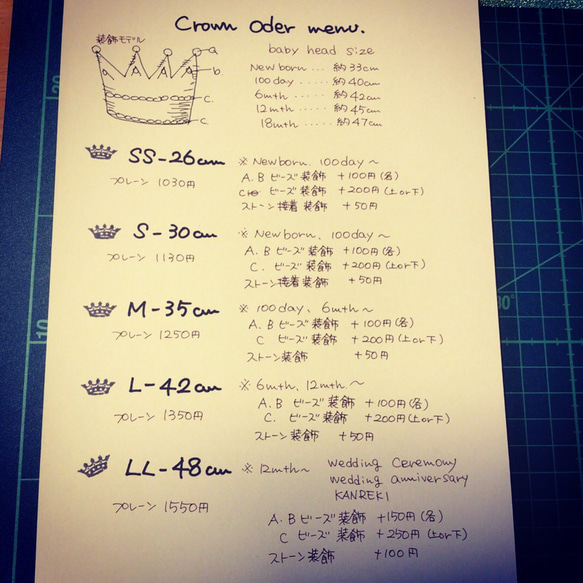 Crown Oder menu.
装飾モデル
a
b.
C.
C.
baby head size
New born ・・・ 約33cm
100day ・・・・・ 約40cm
6mth ・・・・・ 約42cm
12mth ・・・・・ 約45cm
18mth ・・・・・ 約47cm
SS-26cm
プレーン 1030円
※ Newborn. 100day～
A.B ビーズ装飾 +100円(各)
C ビーズ装飾 +200円(上or下)
ストーン接着装飾 +50円
S-30cm
プレーン 1130円
※ Newborn, 100day～
A.B ビーズ装飾 +100円(各)
C. ビーズ装飾 +200円(上or下)
ストーン接着装飾 +50円
M-35cm
プレーン 1250円
※ 100day、6mth～
A.B ビーズ装飾 +100円(各)
C ビーズ装飾 +200円(上or下)
ストーン装飾 +50円
L-42cm
プレーン 1350円
※ 6mth, 12mth.～
A.B ビーズ装飾 +100円(各)
C. ビーズ装飾 +200円(上or下)
ストーン装飾 +50円
LL-48cm
プレーン 1550円
※ 12mth～
wedding Ceremony
wedding anniversary
KANREKI
A.B ビーズ装飾 +150円(各)
C ビーズ装飾 +250円(上or下)
ストーン装飾 +100円